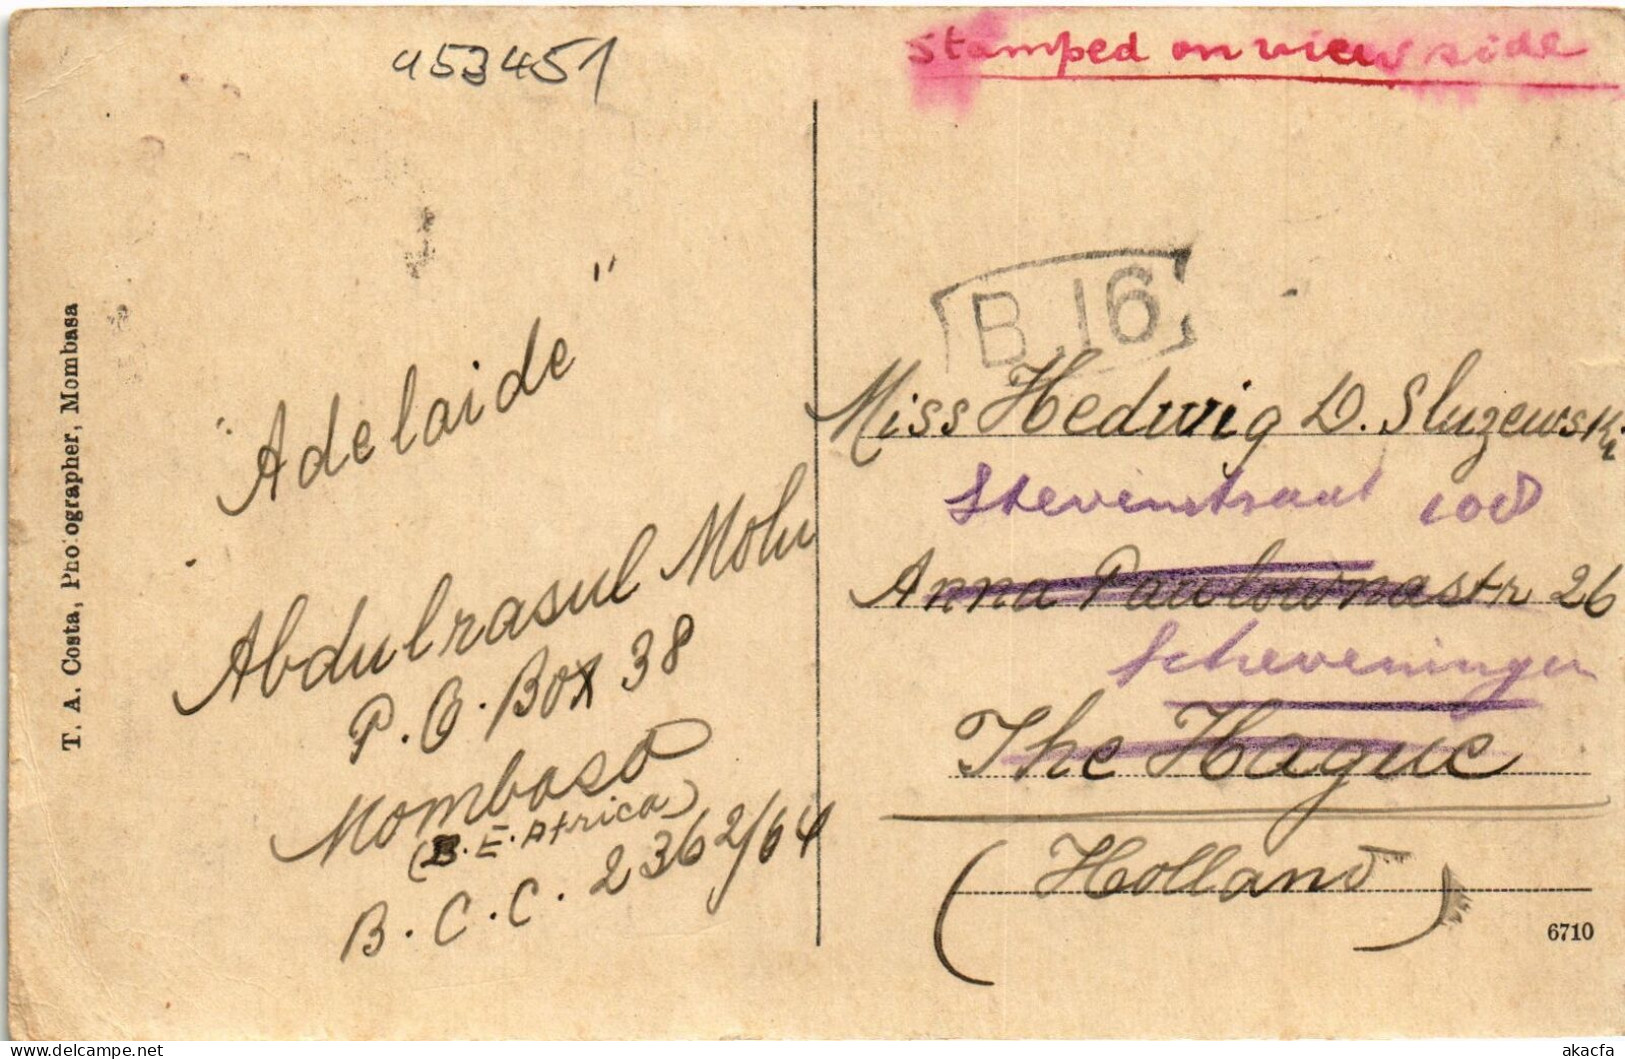 453451
Stamped on view side
B.16
"Adelaide"
Abdulrasul Molu
P.O. Box 38
Mombasa
(B.E. Africa)
B.C.C. 2362/64
T. A. Costa, Photographer, Mombasa
Miss Hedwig D. Sluzewski
Stevinstraat 108
Anna Paulownastr 26
Scheveningen
The Hague
(Holland)
6710
akacfa